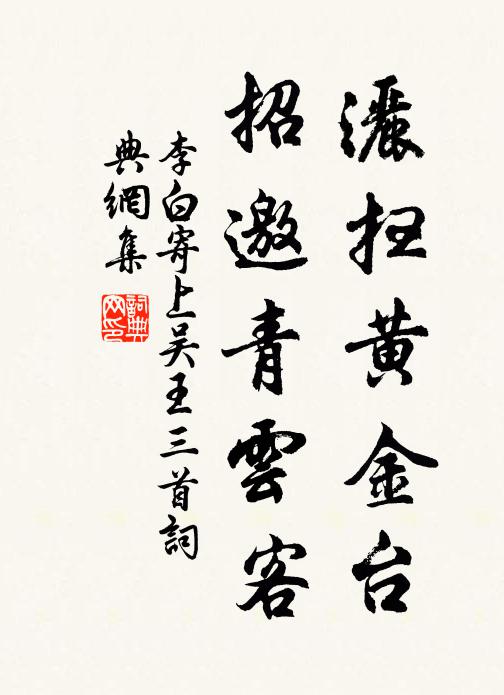 灑扫黃金台
招邀青雲客
李白寄上吴王三首詞
典網集
詞典
网印